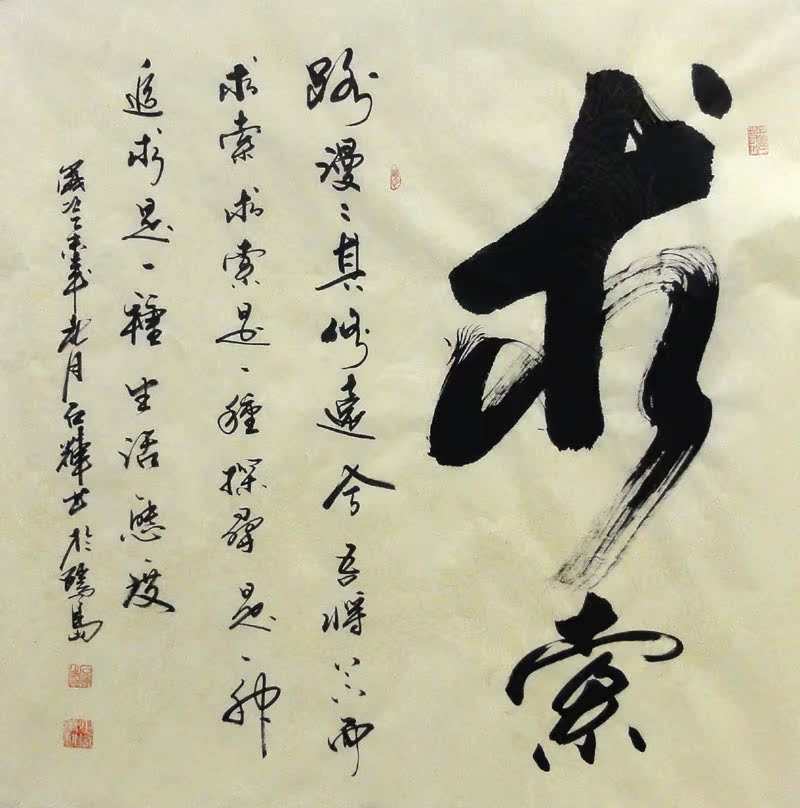 求索
路漫漫其修遠兮吾將上下而
求索求索是一種探尋是一種
追求是一種生活態度
歲次丁未年 月石輝書於鷺島